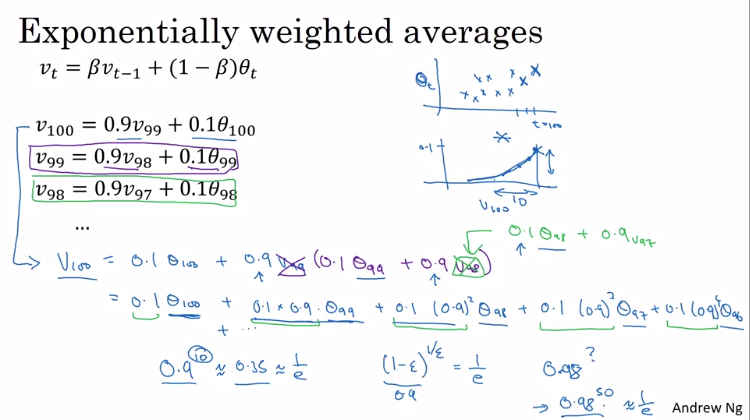 Exponentially weighted averages
v_t = βv_{t−1} + (1 − β)θ_t
θ_t
t=100
v_100 = 0.9v_99 + 0.1θ_100
v_99 = 0.9v_98 + 0.1θ_99
v_98 = 0.9v_97 + 0.1θ_98
...
0.1
10
V_100
0.1 θ_98 + 0.9 v_97
V_100 = 0.1 θ_100 + 0.9 V_99 (0.1 θ_99 + 0.9 V_98)
= 0.1 θ_100 + 0.1 × 0.9 · θ_99 + 0.1 (0.9)^2 θ_98 + 0.1 (0.9)^3 θ_97 + 0.1 (0.9)^4 θ_96
+ ...
0.9^10 ≈ 0.35 ≈ 1/e
(1-ε)^{1/ε} = 1/e
0.9
0.98 ?
→ 0.98^50 ≈ 1/e
Andrew Ng